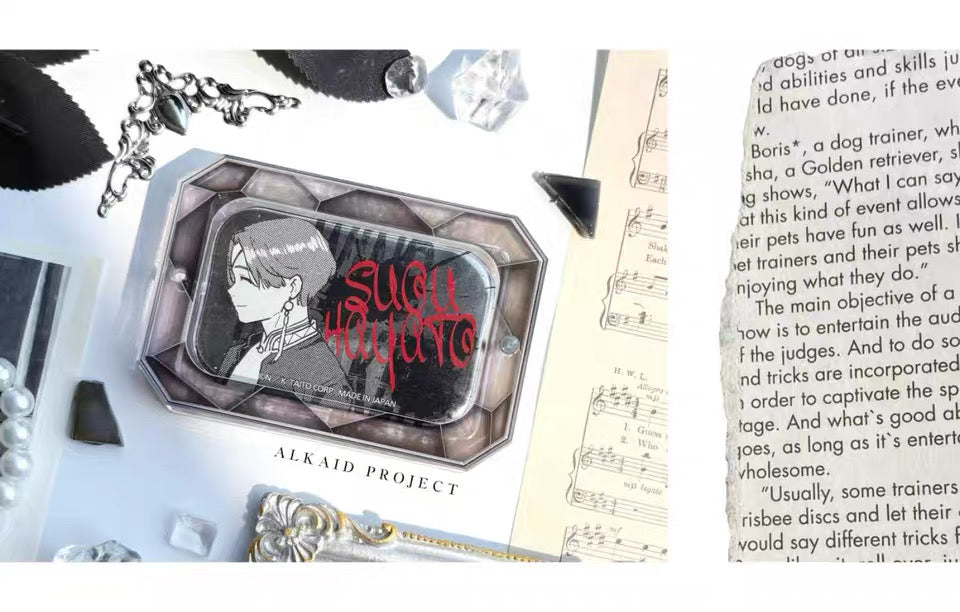 SUOU
HAYATO
K. TAITO CORP. MADE IN JAPAN
ALKAID PROJECT
H. W. L.
Allegro
mp
1. Guess
2. Who
mp legato
mf
Shak
Each
dogs of all
abilities and skills ju
ld have done, if the eve
w.
Boris*, a dog trainer, wh
sha, a Golden retriever, sh
g shows, "What I can say
at this kind of event allows
eir pets have fun as well. I
et trainers and their pets sh
njoying what they do."
The main objective of a
how is to entertain the aud
f the judges. And to do so
nd tricks are incorporated
order to captivate the sp
tage. And what`s good ab
goes, as long as it`s enterta
wholesome.
"Usually, some trainers
risbee discs and let their
would say different tricks f